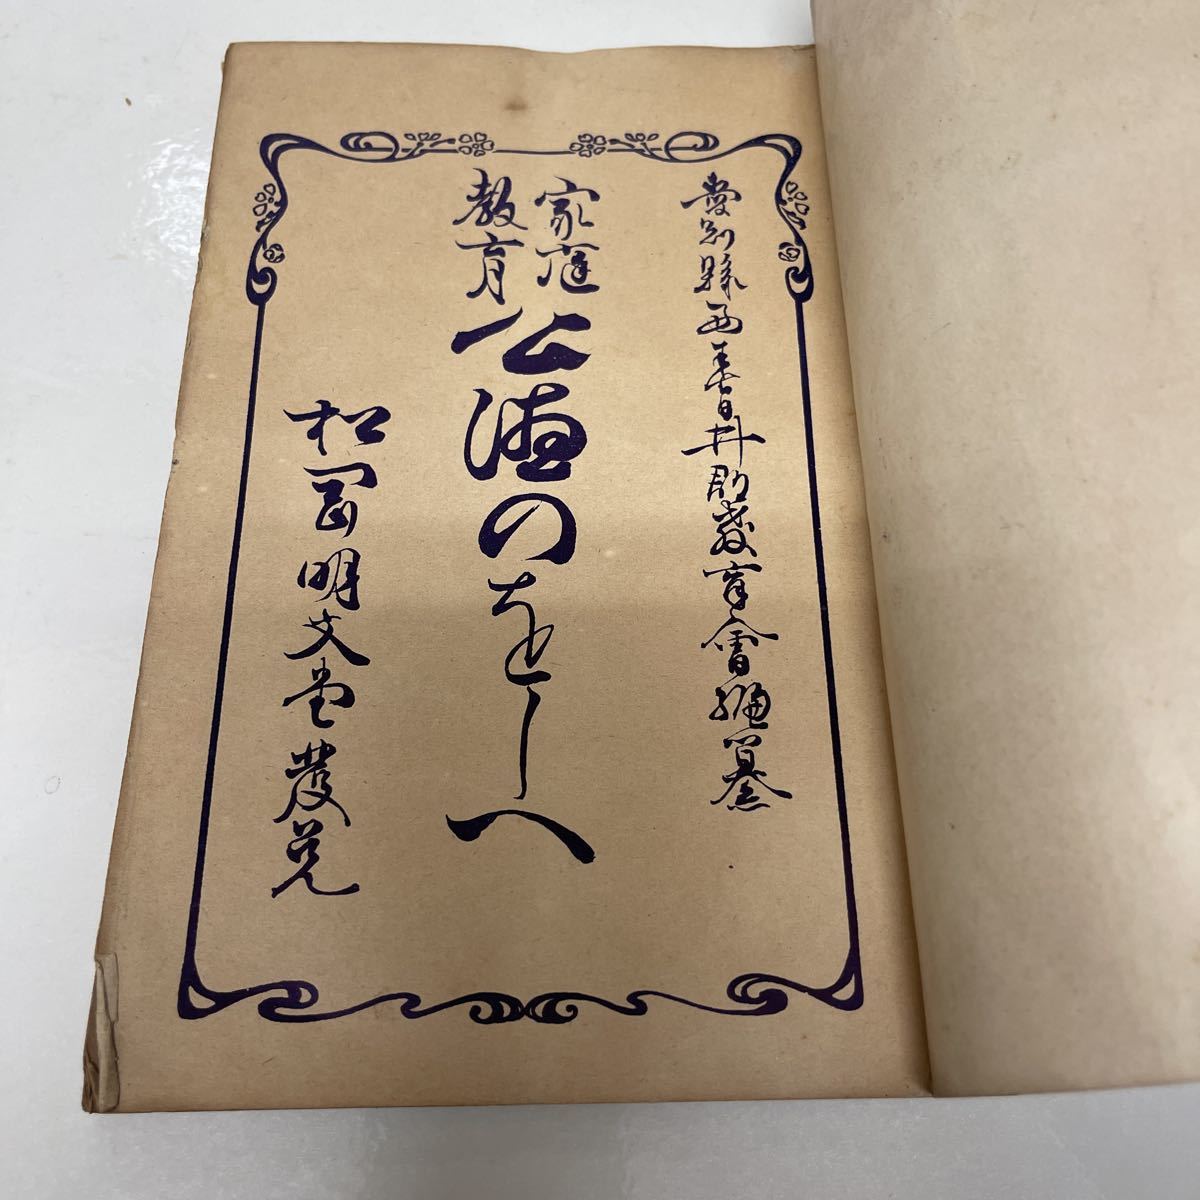 愛知縣西春日井郡教育會編纂
家庭
教育
公徳のをしへ
松岡明文堂發兌